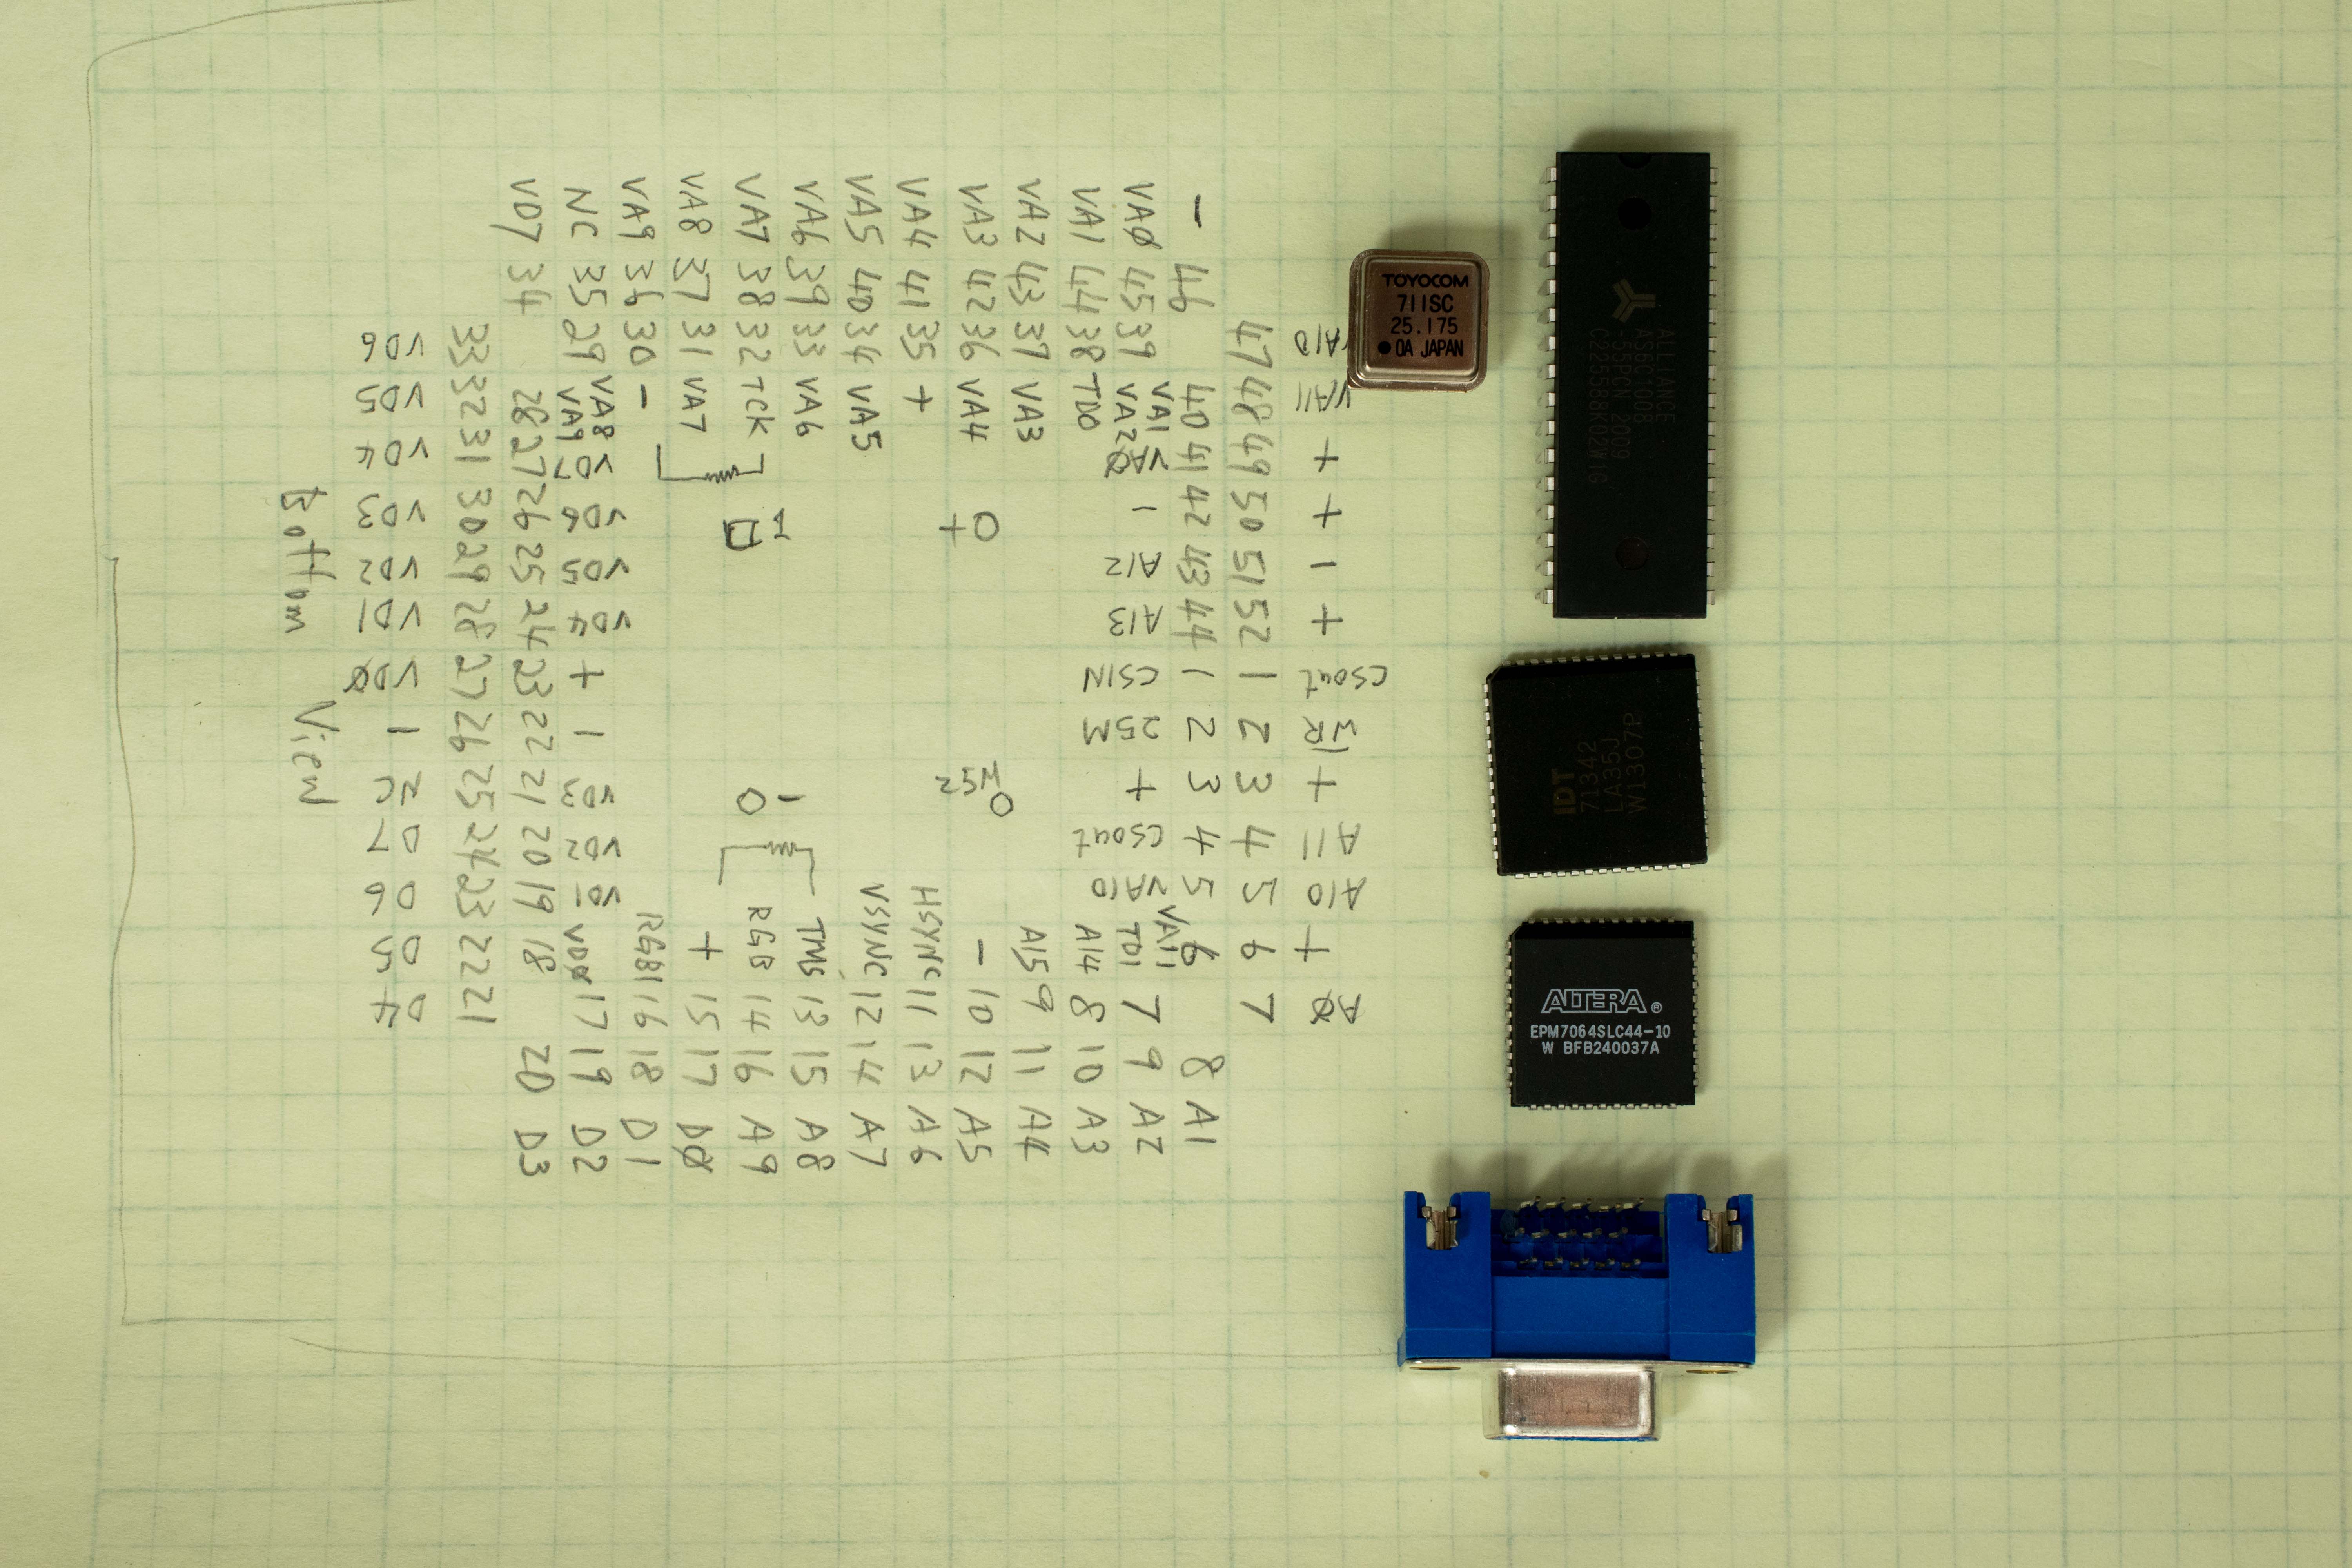 TOYOCOM
711SC
25.175
OA JAPAN
ALLIANCE
AS6C1008
-55PCN 2009
IDT
71342
LA35J
W1307P
ALTERA®
EPM7064SLC44-10
W BFB240037A
VA10 VA11 + + - + CSout WR + A11 A10 + AØ
47 48 49 50 51 52 1 2 3 4 5 6 7
- 46 40 41 42 43 44 1 2 3 4 5 6 8 A1
VA1 VAØ - A12 A13 CSIN 25M + CSout VA10 VA11
VAØ 45 39 VA2 TDI 7 9 A2
VA1 44 38 TDO A14 8 10 A3
VA2 43 37 VA3 A15 9 11 A4
VA3 42 36 VA4 O+ 25M O - 10 12 A5
VA4 41 35 + HSYNC 11 13 A6
VA5 40 34 VA5 VSYNC 12 14 A7
VA6 39 33 VA6 TMS 13 15 A8
VA7 38 32 TCK 1 O - RGB 14 16 A9
VA8 37 31 VA7 + 15 17 DØ
VA9 36 30 - RGBI 16 18 D1
NC 35 29 VA8 VD7 VD6 VD5 VD4 + - VD3 VD2 VD1 VDØ 17 19 D2
VA9
VD7 34 28 27 26 25 24 23 22 21 20 19 18 20 D3
33 32 31 30 29 28 27 26 25 24 23 22 21
VD6 VD5 VD4 VD3 VD2 VD1 VDØ - NC D7 D6 D5 D4
Bottom View